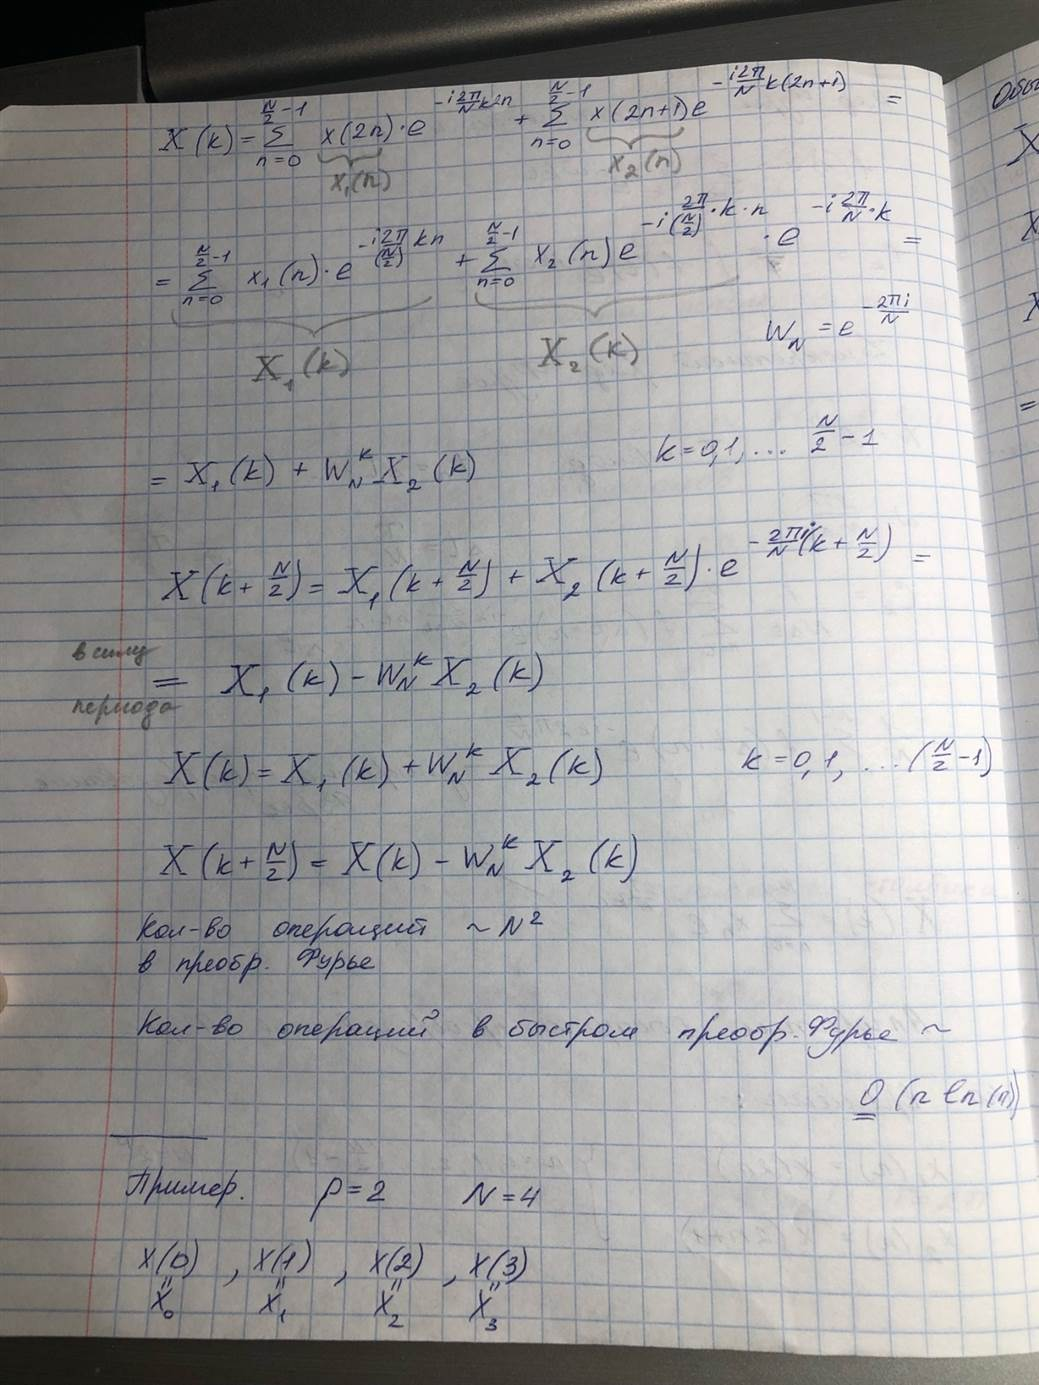 X(k) = Σ_{n=0}^{N/2 -1} x(2n)·e^{-i2π/N k2n} + Σ_{n=0}^{N/2 -1} x(2n+1)e^{-i2π/N k(2n+1)} =
x₁(n) x₂(n)
= Σ_{n=0}^{N/2 -1} x₁(n)·e^{-i2π/(N/2) kn} + Σ_{n=0}^{N/2 -1} x₂(n)e^{-i 2π/(N/2)·k·n}·e^{-i 2π/N·k} =
X₁(k) X₂(k) W_N = e^{-2πi/N}
= X₁(k) + W_N^k X₂(k) k=0,1,... N/2 -1
X(k+N/2) = X₁(k+N/2) + X₂(k+N/2)·e^{-2πi/N(k+N/2)} =
в силу
= X₁(k) - W_N^k X₂(k)
периода
X(k) = X₁(k) + W_N^k X₂(k) k=0,1, ...(N/2 -1)
X(k+N/2) = X(k) - W_N^k X₂(k)
Кол-во операций ~ N²
в преобр. Фурье
Кол-во операций в быстром преобр. Фурье ~
O (n ln(n))
Пример. p=2 N=4
X(0) , X(1) , X(2) , X(3)
" " " "
X₀ X₁ X₂ X₃
Обы
X
X
X
=